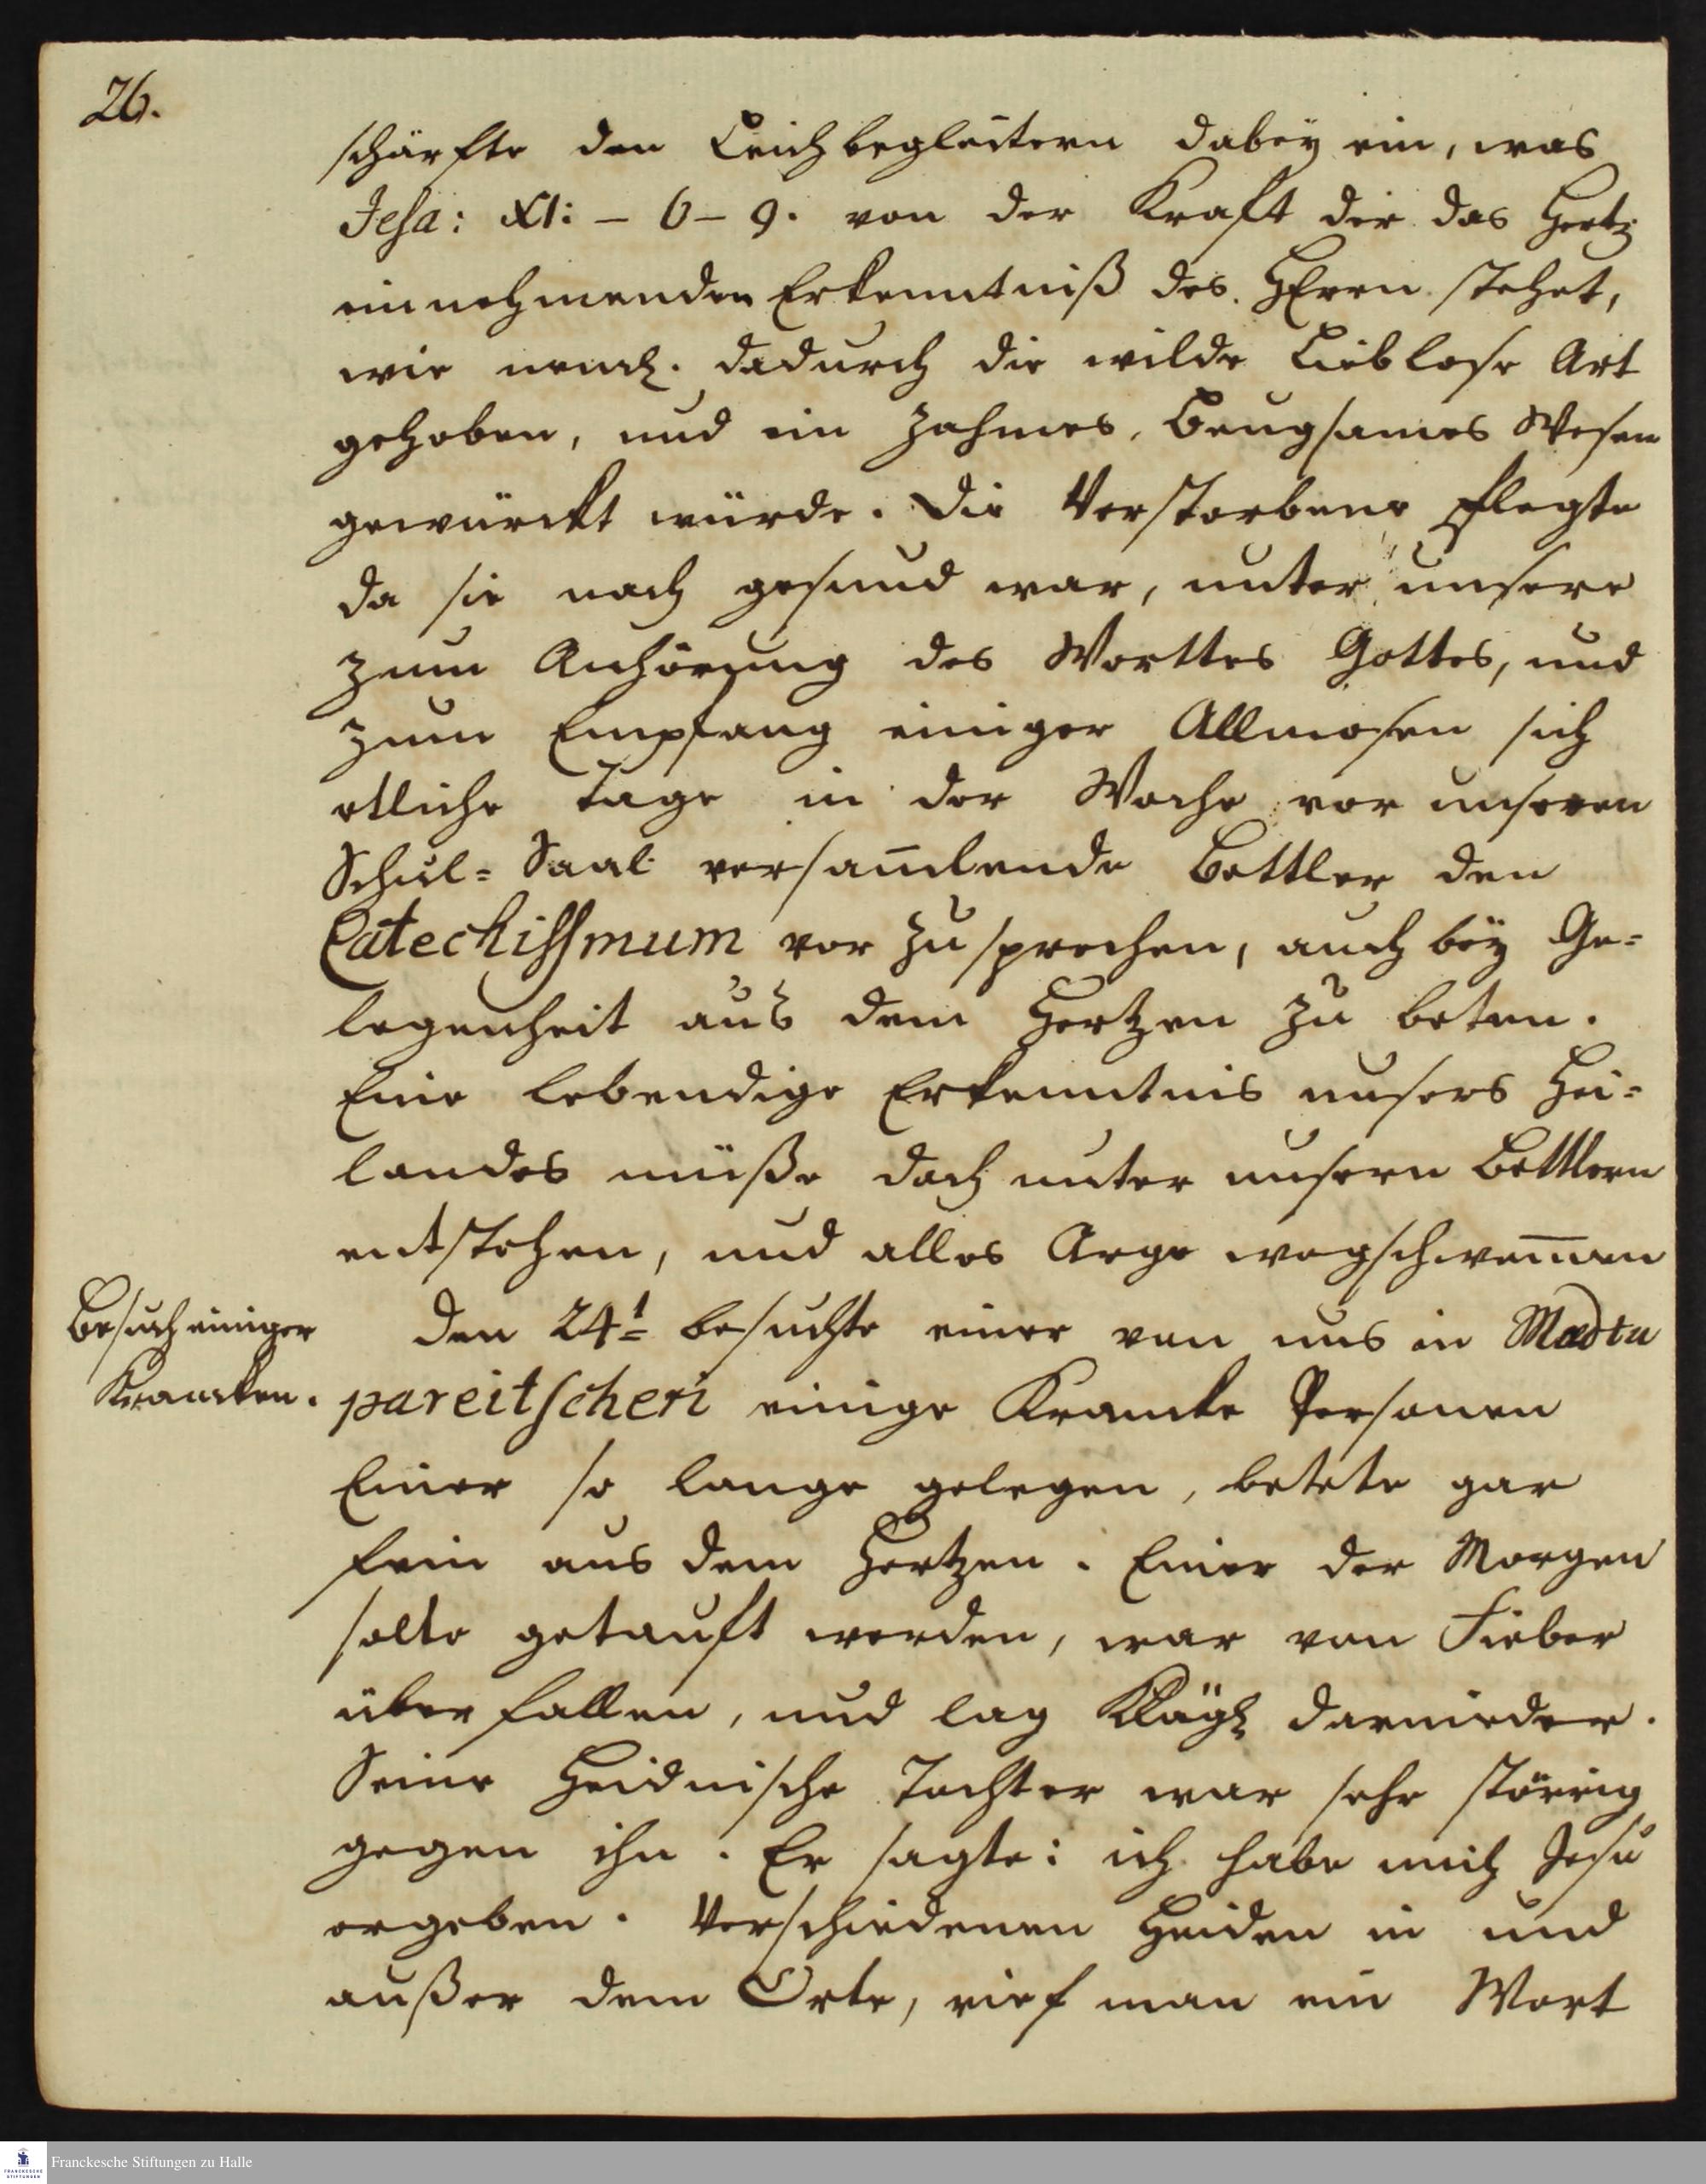 26.
schärfte den Leichbegleitern dabey ein, was
Jesa: XI: – 6 – 9. von der Kraft der das Hertz
einnehmenden Erkenntniß des HErrn stehet,
wie neml. dadurch die wilde Lieblose Art
gehoben, und ein zahmes, Beugsames Wesen
gewürckt würde. Die Verstorbene pflegte
da sie noch gesund war, unter unsere
zum Anhörung des Worttes Gottes, und
zum Empfang einiger Allmosen sich
etliche Tage in der Woche vor unseren
Schul= Saal versam̅lende Bettler den
Catechissmum vor zu sprechen, auch bey Ge=
legenheit aus dem Hertzen zu beten.
Eine lebendige Erkenntnis unsers Hei=
landes müße doch unter unsern Bettlern
entstehen, und alles Arge wegschwem̅en
Besuch einiger
Krancken.
Den 24t besuchte einer von uns in Madtu
pareitscheri einige Krancke Personen
Einer so lange gelegen, betete gar
fein aus dem Hertzen. Einer der Morgen
solte getauft werden, war von Fieber
überfallen, und lag Klägl darnieder.
Seine Heidnische Tochter war sehr störrig
gegen ihn. Er sagte: ich habe mich Jesu
ergeben. Verschiedenen Heiden in und
außer dem Orte, rief man ein Wort
FRANCKESCHE STIFTUNGEN
Franckesche Stiftungen zu Halle